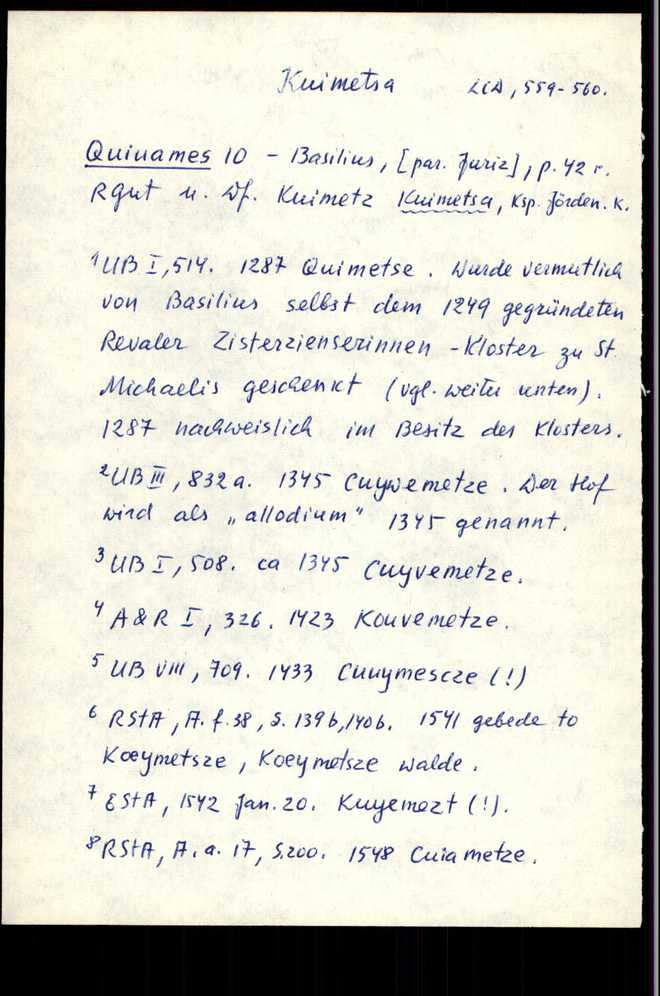 Kuimetsa LCD, 559-560.
Quiuames 10 - Basilius, [par. Juriz], p. 42 r.
Rgut u. Df. Kuimetz Kuimetsa, Ksp. Jörden. K.
¹UB I, 514. 1287 Quimetse. Wurde vermutlich
von Basilius selbst dem 1249 gegründeten
Revaler Zisterzienserinnen-Kloster zu St.
Michaelis geschenkt (vgl. weiter unten).
1287 nachweislich im Besitz des Klosters.
²UB III, 832a. 1345 Cuywemetze. Der Hof
wird als „allodium" 1345 genannt.
³UB I, 508. ca 1345 Cuyvemetze.
⁴A&R I, 326. 1423 Kouvemetze.
⁵UB VIII, 709. 1433 Cuuymescze (!)
⁶RStA, A. f. 38, S. 139b, 140b. 1541 gebede to
Koeymetsze, Koeymetsze walde.
⁷EStA, 1542 Jan. 20. Kuyemezt (!).
⁸RStA, A. a. 17, S. 200. 1548 Cuiametze.